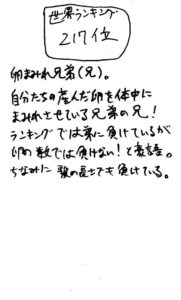 世界ランキング
217位
卵まみれ兄弟(兄)。
自分たちの産んだ卵を体中に
まみれさせている兄弟の兄!
ランキングでは弟に負けているが
卵の数では負けない!と豪語。
ちなみに 髪の長さでも負けている。